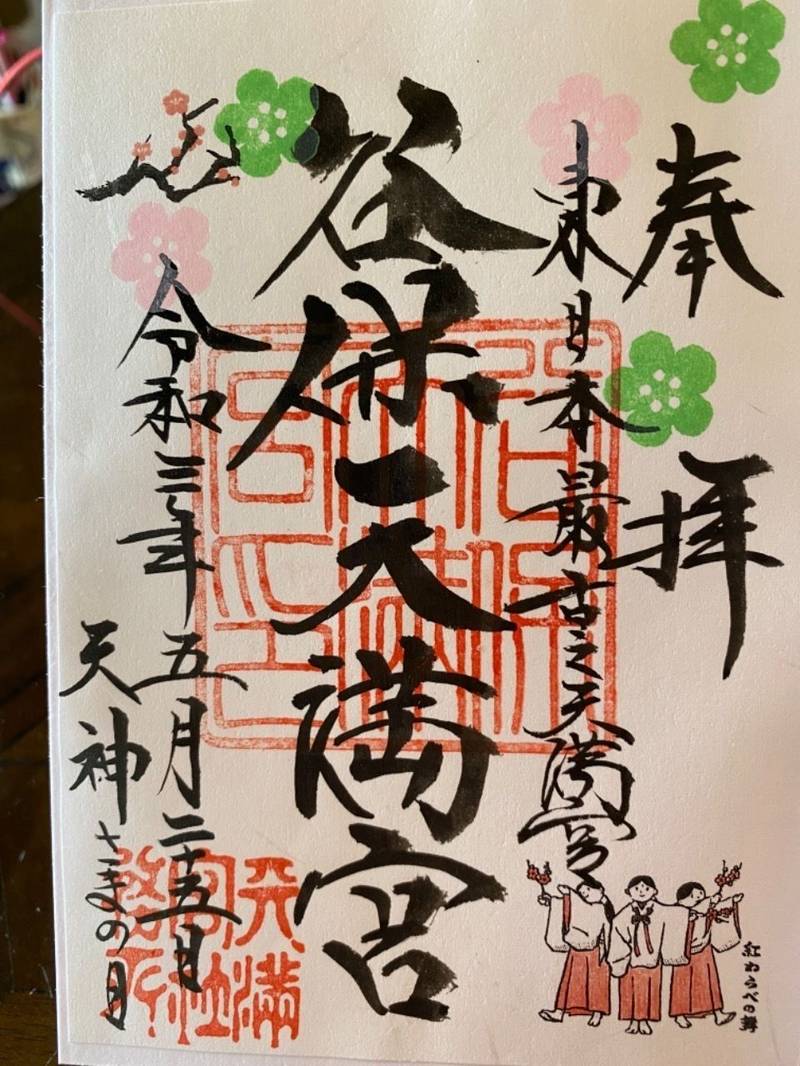 奉拝
東日本最古之天満宮
谷保天満宮
令和三年五月二十五日
天神さまの日
紅わらべの舞
谷保天満宮印
天満宮社務所